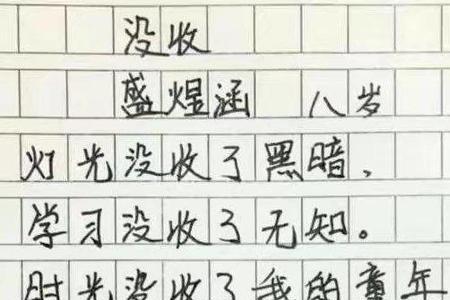 没收
盛煜涵 八岁
灯光没收了黑暗、
学习没收了无知。
时光没收了我的童年